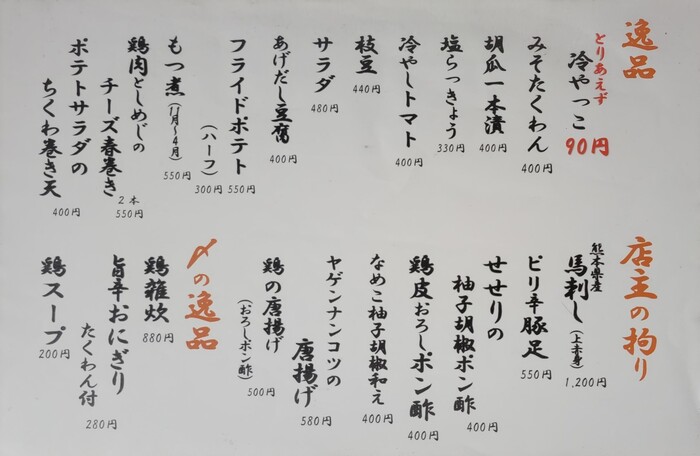 逸品
とりあえず
冷やっこ
90円
みそたくわん
400円
胡瓜一本漬
400円
塩らっきょう
330円
冷やしトマト
400円
枝豆
440円
サラダ
480円
あげだし豆腐
400円
フライドポテト
550円
(ハーフ)
300円
もつ煮(11月~4月)
550円
鶏肉としめじの
チーズ春巻き
2本
550円
ポテトサラダの
ちくわ巻き天
400円
店主の拘り
熊本県産
馬刺し(上赤身)
1,200円
ピリ辛豚足
550円
せせりの
柚子胡椒ポン酢
400円
鶏皮おろしポン酢
400円
なめこ柚子胡椒和え
400円
ヤゲンナンコツの
唐揚げ
580円
鶏の唐揚げ
(おろしポン酢)
500円
〆の逸品
鶏雑炊
880円
旨辛おにぎり
たくわん付
280円
鶏スープ
200円